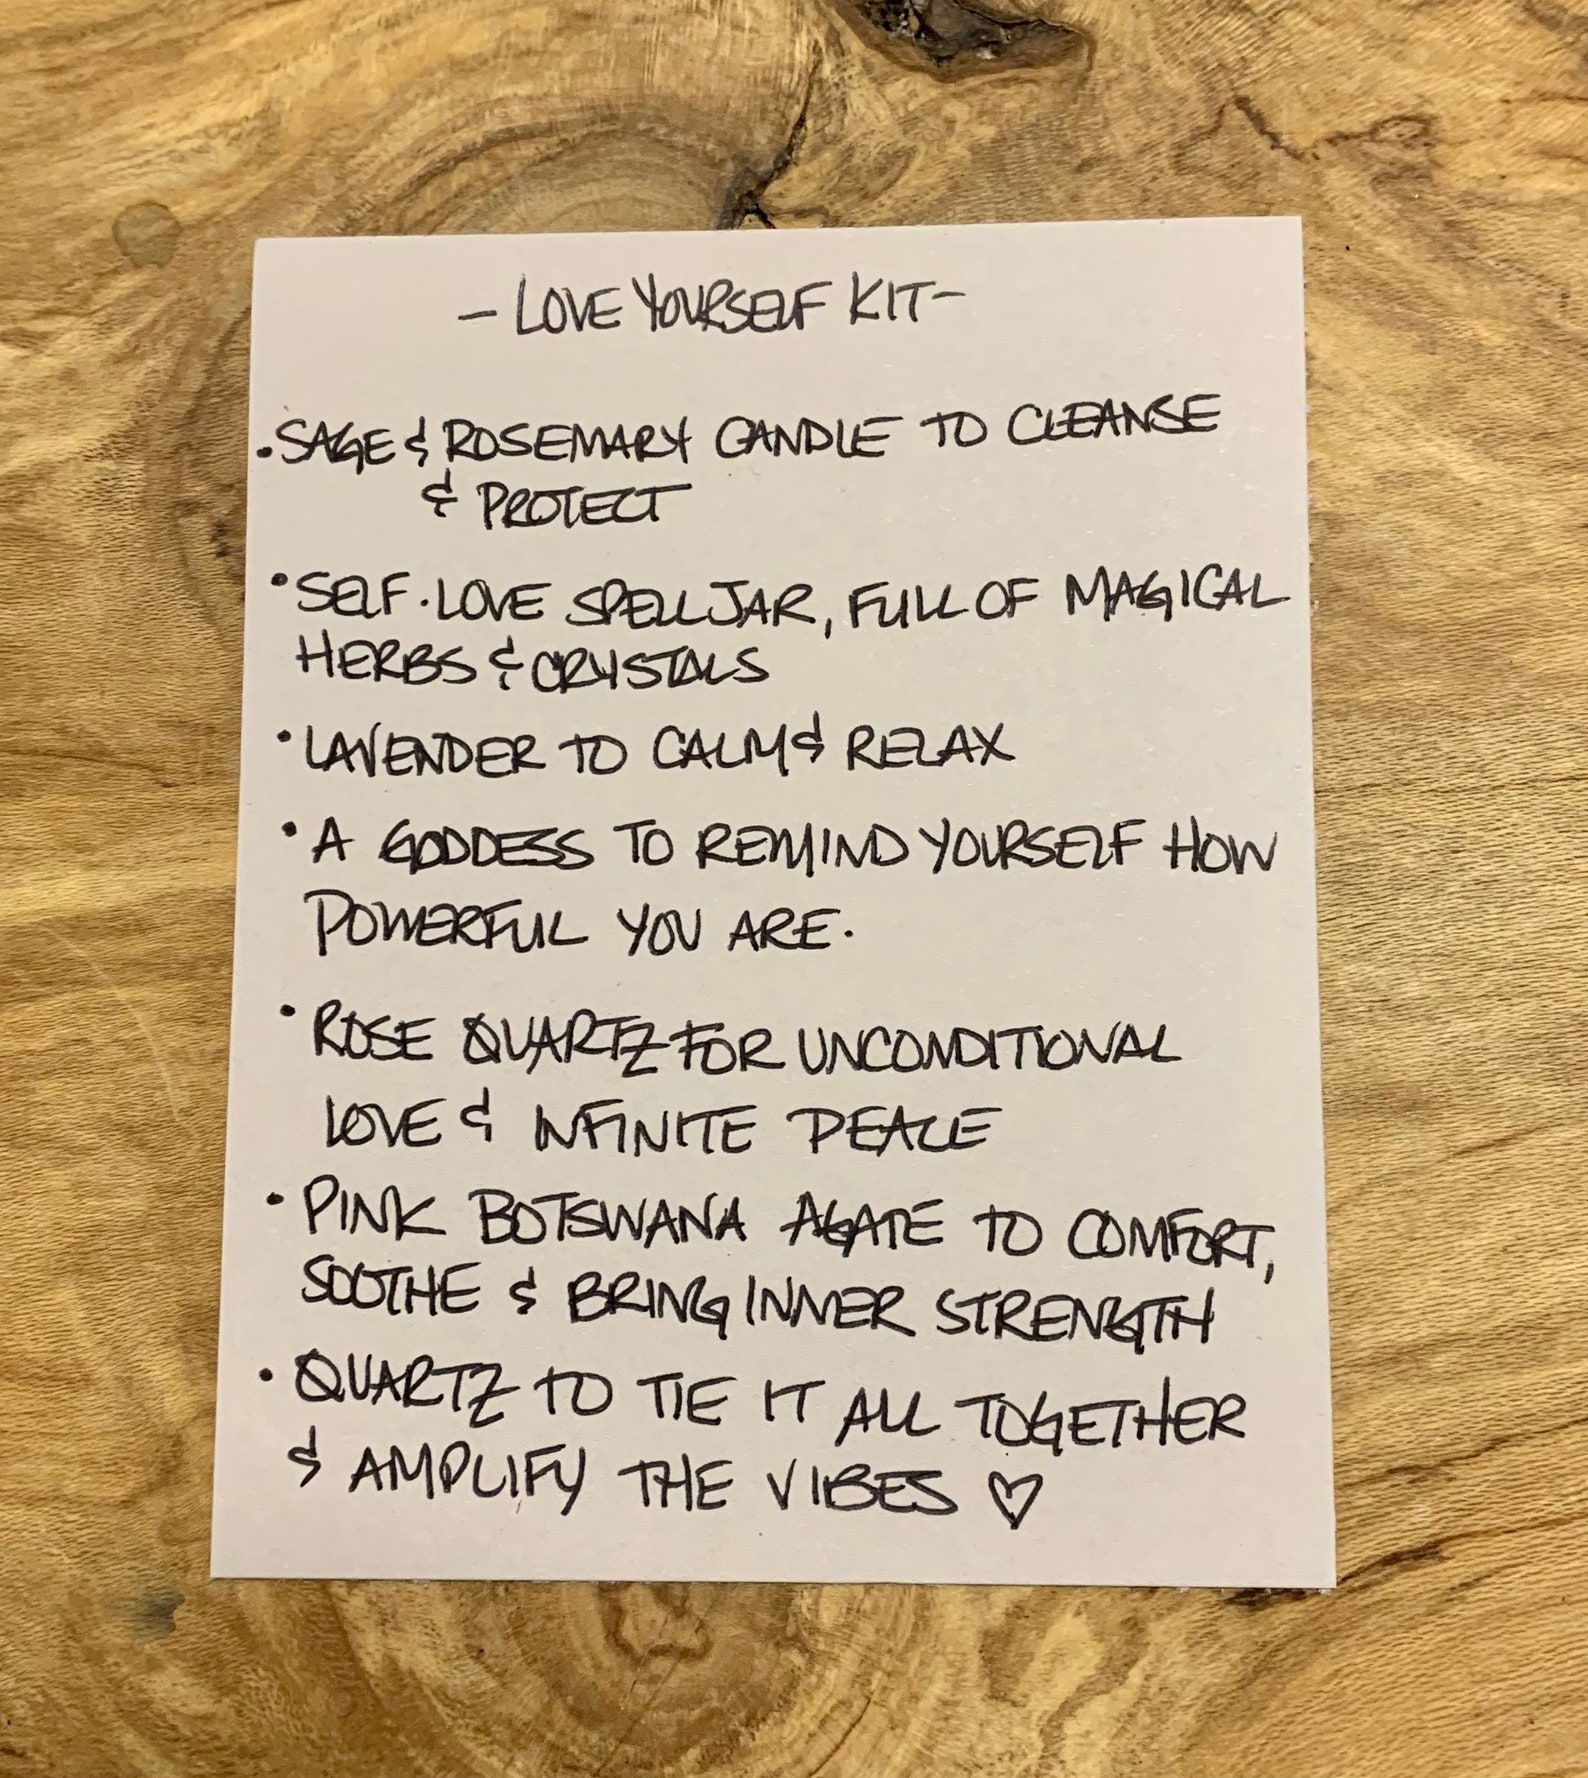 - LOVE YOURSELF KIT -
• SAGE & ROSEMARY CANDLE TO CLEANSE
& PROTECT
• SELF·LOVE SPELL JAR, FULL OF MAGICAL
HERBS & CRYSTALS
• LAVENDER TO CALM & RELAX
• A GODDESS TO REMIND YOURSELF HOW
POWERFUL YOU ARE.
• ROSE QUARTZ FOR UNCONDITIONAL
LOVE & INFINITE PEACE
• PINK BOTSWANA AGATE TO COMFORT,
SOOTHE & BRING INNER STRENGTH
• QUARTZ TO TIE IT ALL TOGETHER
& AMPLIFY THE VIBES ♡